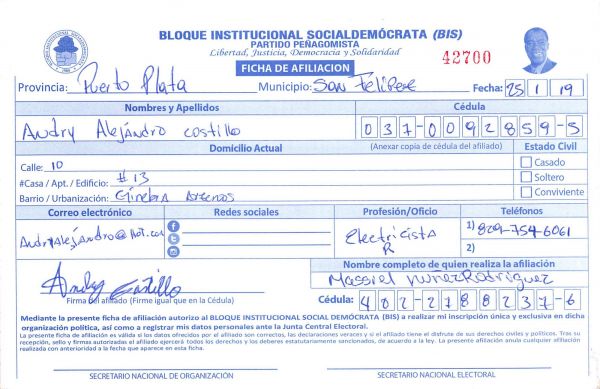 BLOQUE INSTITUCIONAL SOCIALDEMÓCRATA (BIS)
PARTIDO PEÑAGOMISTA
Libertad, Justicia, Democracia y Solidaridad
42700
FICHA DE AFILIACION
Provincia: Puerto Plata Municipio: San Felipe Fecha: 25 1 19
Nombres y Apellidos Cédula
Andry Alejandro Castillo 037-0092859-5
Domicilio Actual (Anexar copia de cédula del afiliado) Estado Civil
Calle: 10 Casado
#Casa / Apt. / Edificio: #13 Soltero
Barrio / Urbanización: Ginebra Arzenos Conviviente
Correo electrónico Redes sociales Profesión/Oficio Teléfonos
AndryAlejandro@Hot.com Electricista 1) 829-754-6061
2)
Nombre completo de quien realiza la afiliación
Andry Castillo Massiel Nuñez Rodriguez
Firma del afiliado (Firme igual que en la Cédula) Cédula: 402-2788237-6
Mediante la presente ficha de afiliación autorizo al BLOQUE INSTITUCIONAL SOCIAL DEMÓCRATA (BIS) a realizar mi inscripción única y exclusiva en dicha
organización política, así como a registrar mis datos personales ante la Junta Central Electoral.
La presente ficha de afiliación es válida si las datos ofrecidos por el afiliado son correctos, las declaraciones veraces y si el afiliado tiene el disfrute de sus derechos civiles y políticos. Tras su
recepción, sello y firmas autorizadas el afiliado ejercerá todos los derechos y los deberes estatutariamente sancionados, de acuerdo a la ley. La presente afiliación anula cualquier afiliación
realizada con anterioridad a la fecha que aparece en esta ficha.
SECRETARIO NACIONAL DE ORGANIZACIÓN SECRETARIO NACIONAL ELECTORAL